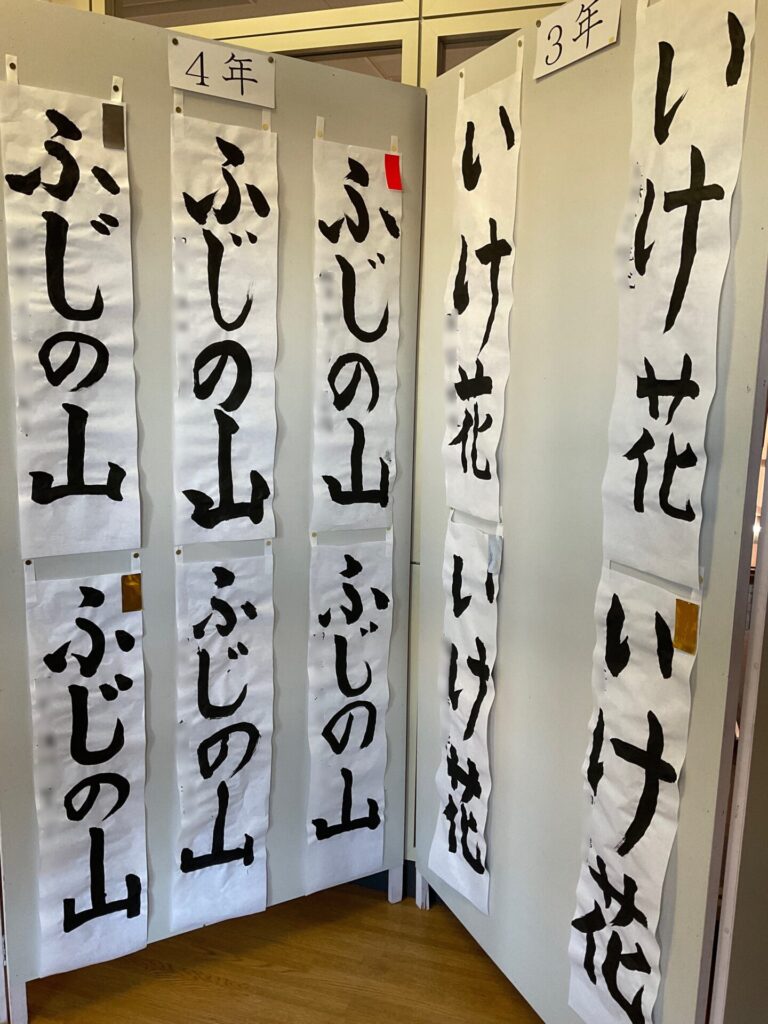 4年
ふじの山
ふじの山
ふじの山
ふじの山
ふじの山
ふじの山
3年
いけ花
いけ花
いけ花
いけ花